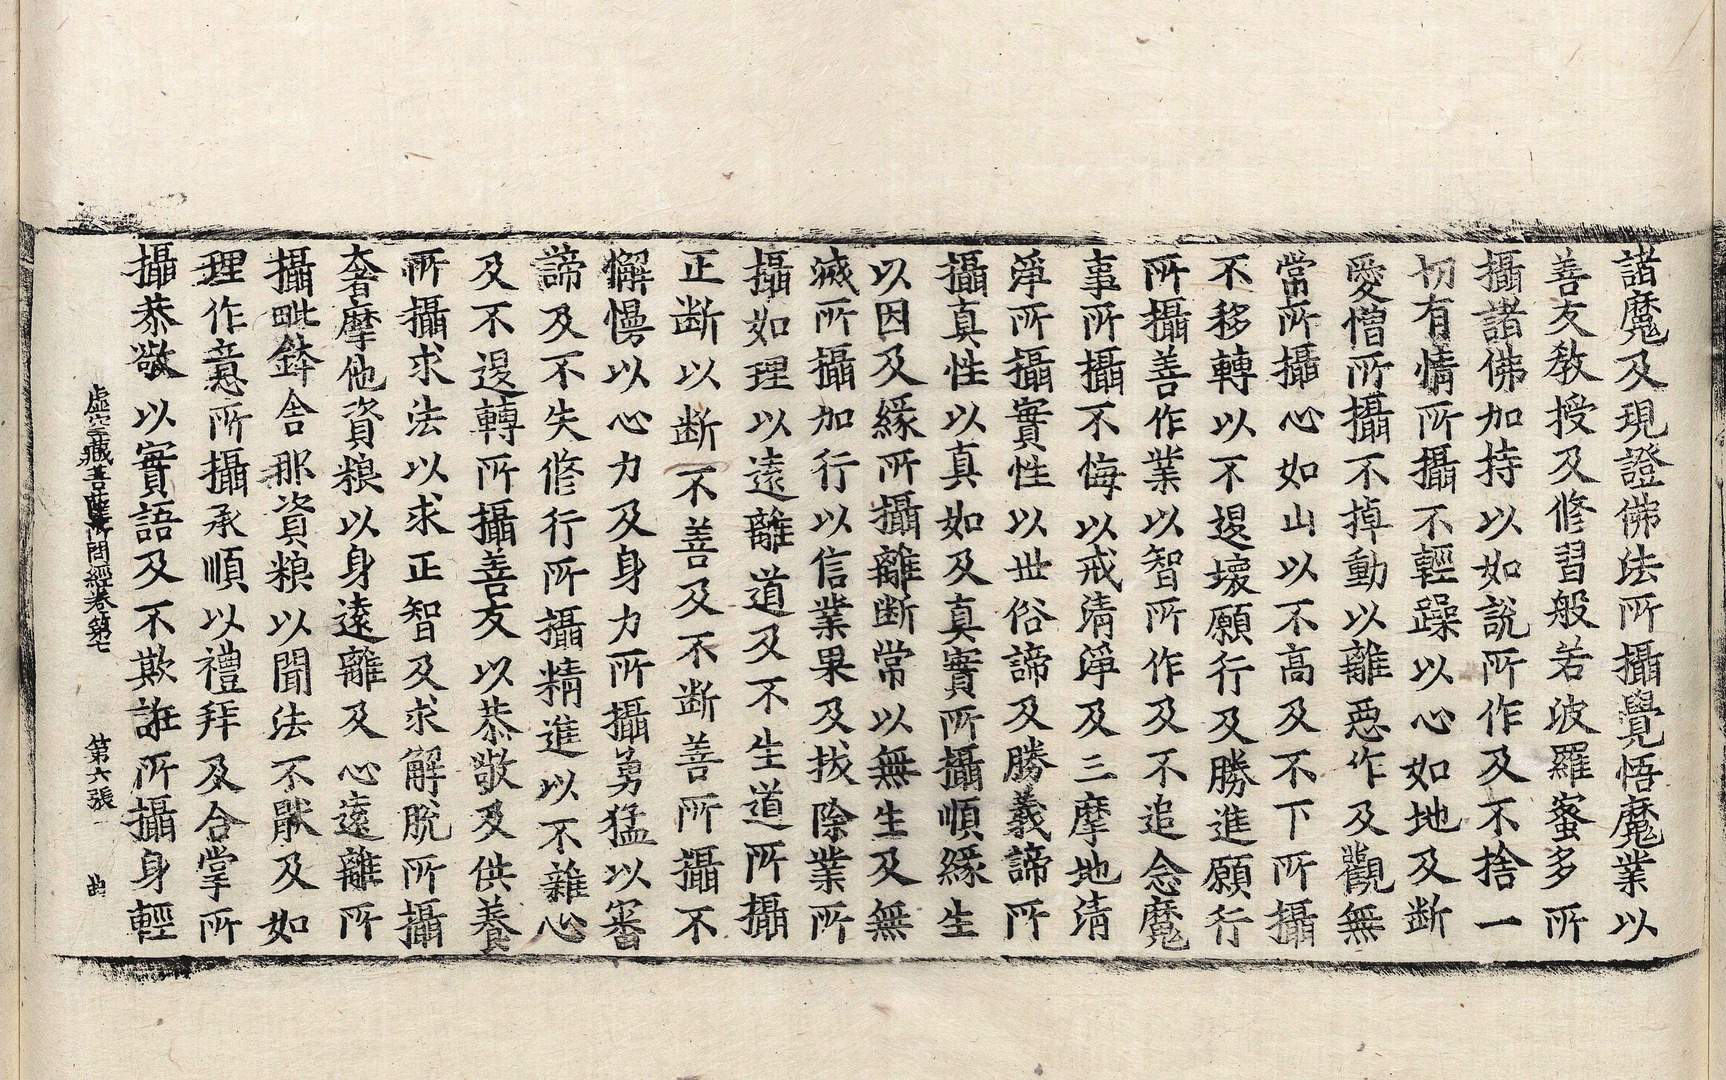 諸魔及現證佛法所攝覺悟魔業以
善友教授及修習般若波羅蜜多所
攝諸佛加持以如說所作及不捨一
切有情所攝不輕躁以心如地及斷
愛憎所攝不掉動以離惡作及觀無
常所攝心如山以不高及不下所攝
不移轉以不退壞願行及勝進願行
所攝善作業以智所作及不追念魔
事所攝不悔以戒清淨及三摩地清
淨所攝實性以世俗諦及勝義諦所
攝真性以真如及真實所攝順緣生
以因及緣所攝離斷常以無生及無
滅所攝加行以信業果及拔除業所
攝如理以遠離道及不生道所攝
正斷以斷不善及不斷善所攝不
懈慢以心力及身力所攝勇猛以審
諦及不失修行所攝精進以不雜心
及不退轉所攝善友以恭敬及供養
所攝求法以求正智及求解脫所攝
奢摩他資粮以身遠離及心遠離所
攝毗鉢舍那資粮以聞法不猒及如
理作意所攝承順以禮拜及合掌所
攝恭敬以實語及不欺誑所攝身輕
虛空藏菩薩所問經卷第七 第六張 曲